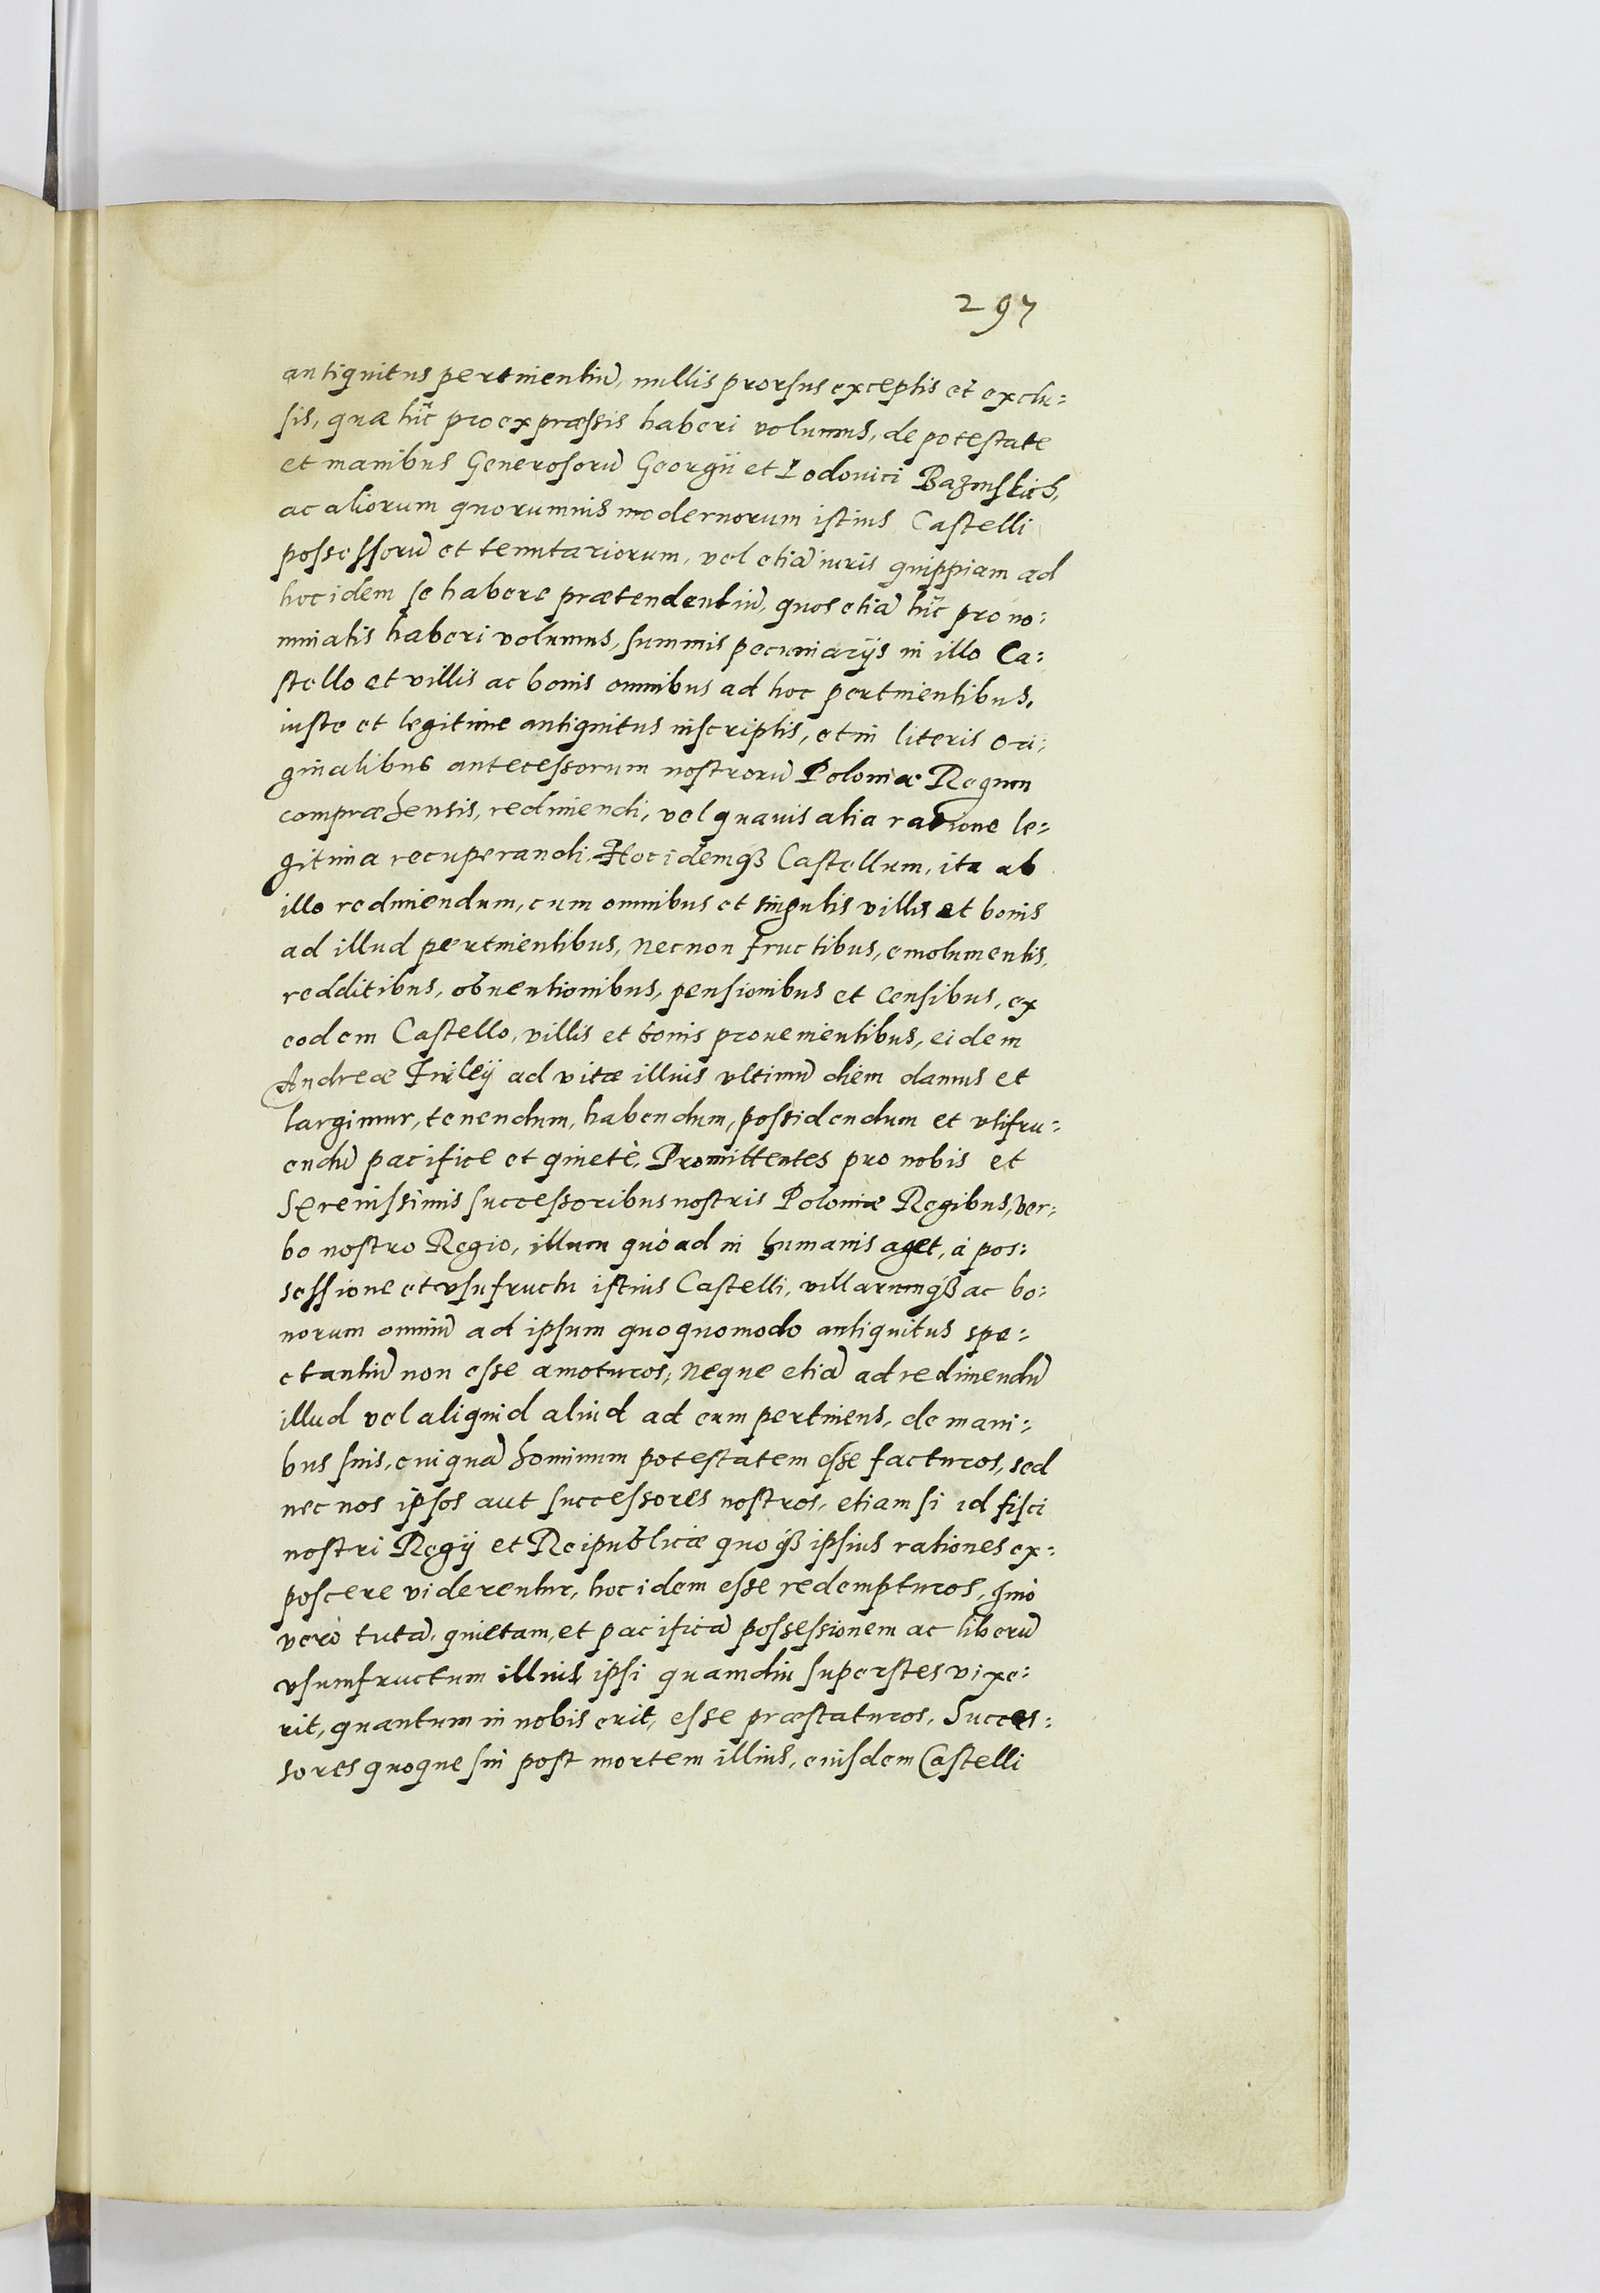 297
antiquitus pertinentiũ, nullis prorsus exceptis et exclu:
sis, quæ hic pro expræssis haberi volumus, de potestate
et manibus Generosorũ Georgii et Lodouici Bazenskich,
ac aliorum quorumuis modernorum istius Castelli
possessorũ et tenutariorum, vel etiã iuris quippiam ad
hoc idem se habere prætendentiũ, quos etiã hic pro no:
minatis haberi volumus, summis pecuniarijs in illo Ca:
stello et villis ac bonis omnibus ad hoc pertinentibus,
iuste et legitime antiquitus inscriptis, et in literis ori:
ginalibus antecessorum nostrorũ Poloniæ Regum
compræhensis, redimendi, vel quauis alia ratione le:
gitima recuperandi. Hoc idemqȝ Castellum, ita ab
illo redimendum, cum omnibus et singulis villis et bonis
ad illud pertinentibus, necnon fructibus, emolumentis,
redditibus, obuentionibus, pensionibus et censibus, ex
eodem Castello, villis et bonis prouenientibus, eidem
Andreæ Firleÿ ad vitæ illius vltimũ diem damus et
largimur, tenendum, habendum, possidendum et vtifru:
endũ pacifice et quietè. Promittentes pro nobis et
Serenissimis successoribus nostris Poloniæ Regibus, ver:
bo nostro Regio, illum quò ad in humanis aget, à pos:
sessione et vsufructu istius Castelli, villarumqȝ ac bo:
norum omniũ ad ipsum quoquomodo antiquitus spe:
ctantiũ non esse amoturos; neque etiã ad redimendũ
illud vel aliquid aliud ad eum pertinens, de mani:
bus suis, cuiquã hominum potestatem esse facturos, sed
nec nos ipsos aut successores nostros, etiam si id fisci
nostri Regij et Reipublicæ quoqȝ ipsius rationes ex:
poscere viderentur, hoc idem esse redempturos, Imò
verò tutã, quietam, et pacificã possessionem ac liberũ
vsumfructum illius ipsi quamdiu superstes vixe:
rit, quantum in nobis erit, esse præstaturos. Succes:
sores quoque sui post mortem illius, eiusdem Castelli